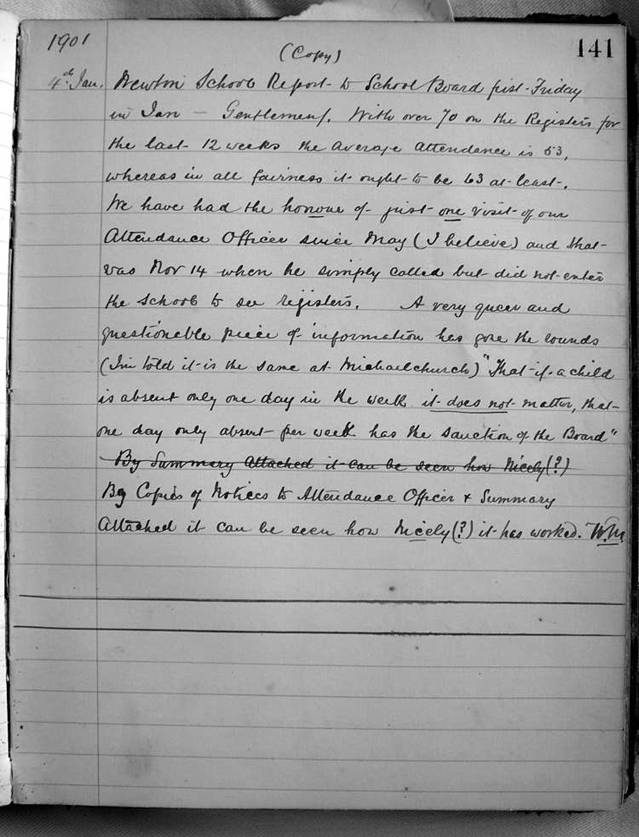 1901
(Copy)
141
4th Jan. Newton School Report to School Board first Friday
in Jan – Gentlemen/. With over 70 on the Registers for
the last 12 weeks the average attendance is 53,
whereas in all fairness it ought to be 63 at least.
We have had the honour of just one visit of our
Attendance Officer since May (I believe) and that
was Nov 14 when he simply called but did not enter
the School to see registers. A very queer and
questionable piece of information has gone the rounds
(I'm told it is the same at Michaelchurch) "That if a child
is absent only one day in the week it does not matter, that
one day only absent per week has the sanction of the Board"
By Summary Attached it can be seen how Nicely (?)
By Copies of Notices to Attendance Officer & Summary
Attached it can be seen how Nicely (?) it has worked. W.M.